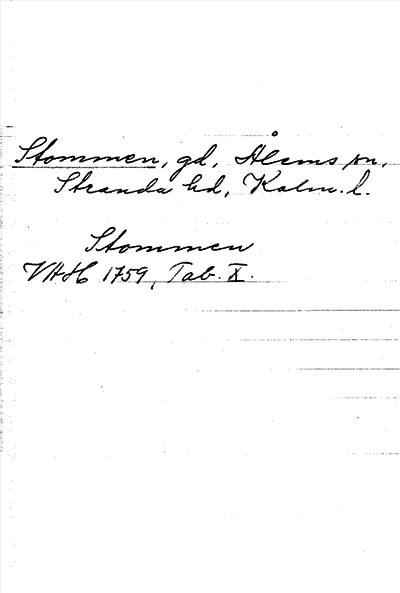 Stommen, gd, Ålems sn,
Stranda hd, Kalm. l.
Stommen
VAH 1759, Tab. X.